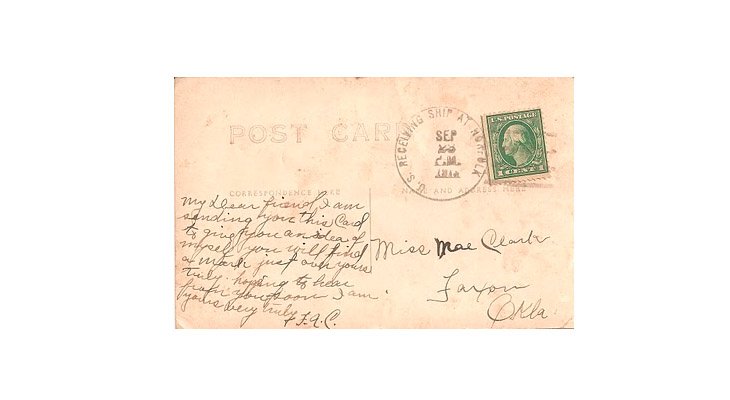 POST CARD
U.S. RECEIVING SHIP AT NORFOLK
SEP
U.S. POSTAGE
1 CENT 1
CORRESPONDENCE HERE
NAME AND ADDRESS HERE
My Dear friend, I am
sending you this Card
to give you an idea of
myself you will find
a mark just over yours
truly. hoping to hear
from you soon I am.
yours very truly
F.A.C.
Miss Mae Clark
Faxon
Okla